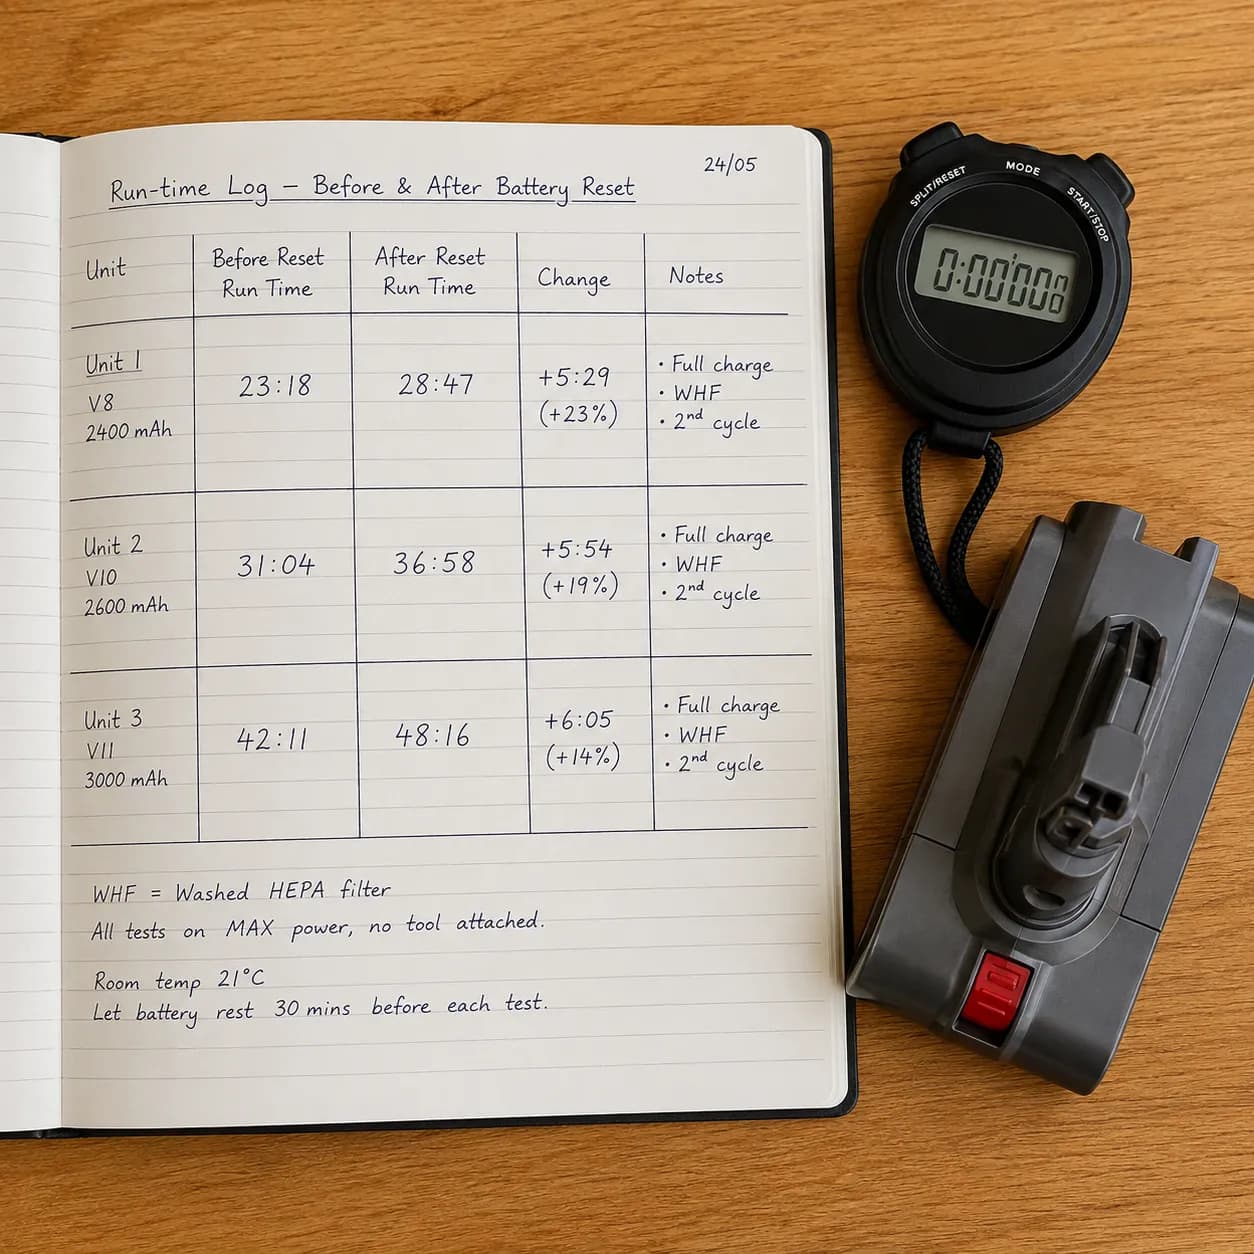 24/05
Run-time Log – Before & After Battery Reset
Unit
Before Reset
Run Time
After Reset
Run Time
Change
Notes
Unit 1
V8
2400 mAh
23:18
28:47
+5:29
(+23%)
• Full charge
• WHF
• 2nd cycle
Unit 2
V10
2600 mAh
31:04
36:58
+5:54
(+19%)
• Full charge
• WHF
• 2nd cycle
Unit 3
V11
3000 mAh
42:11
48:16
+6:05
(+14%)
• Full charge
• WHF
• 2nd cycle
WHF = Washed HEPA filter
All tests on MAX power, no tool attached.
Room temp 21°C
Let battery rest 30 mins before each test.
SPLIT/RESET
MODE
START/STOP
0:00'00